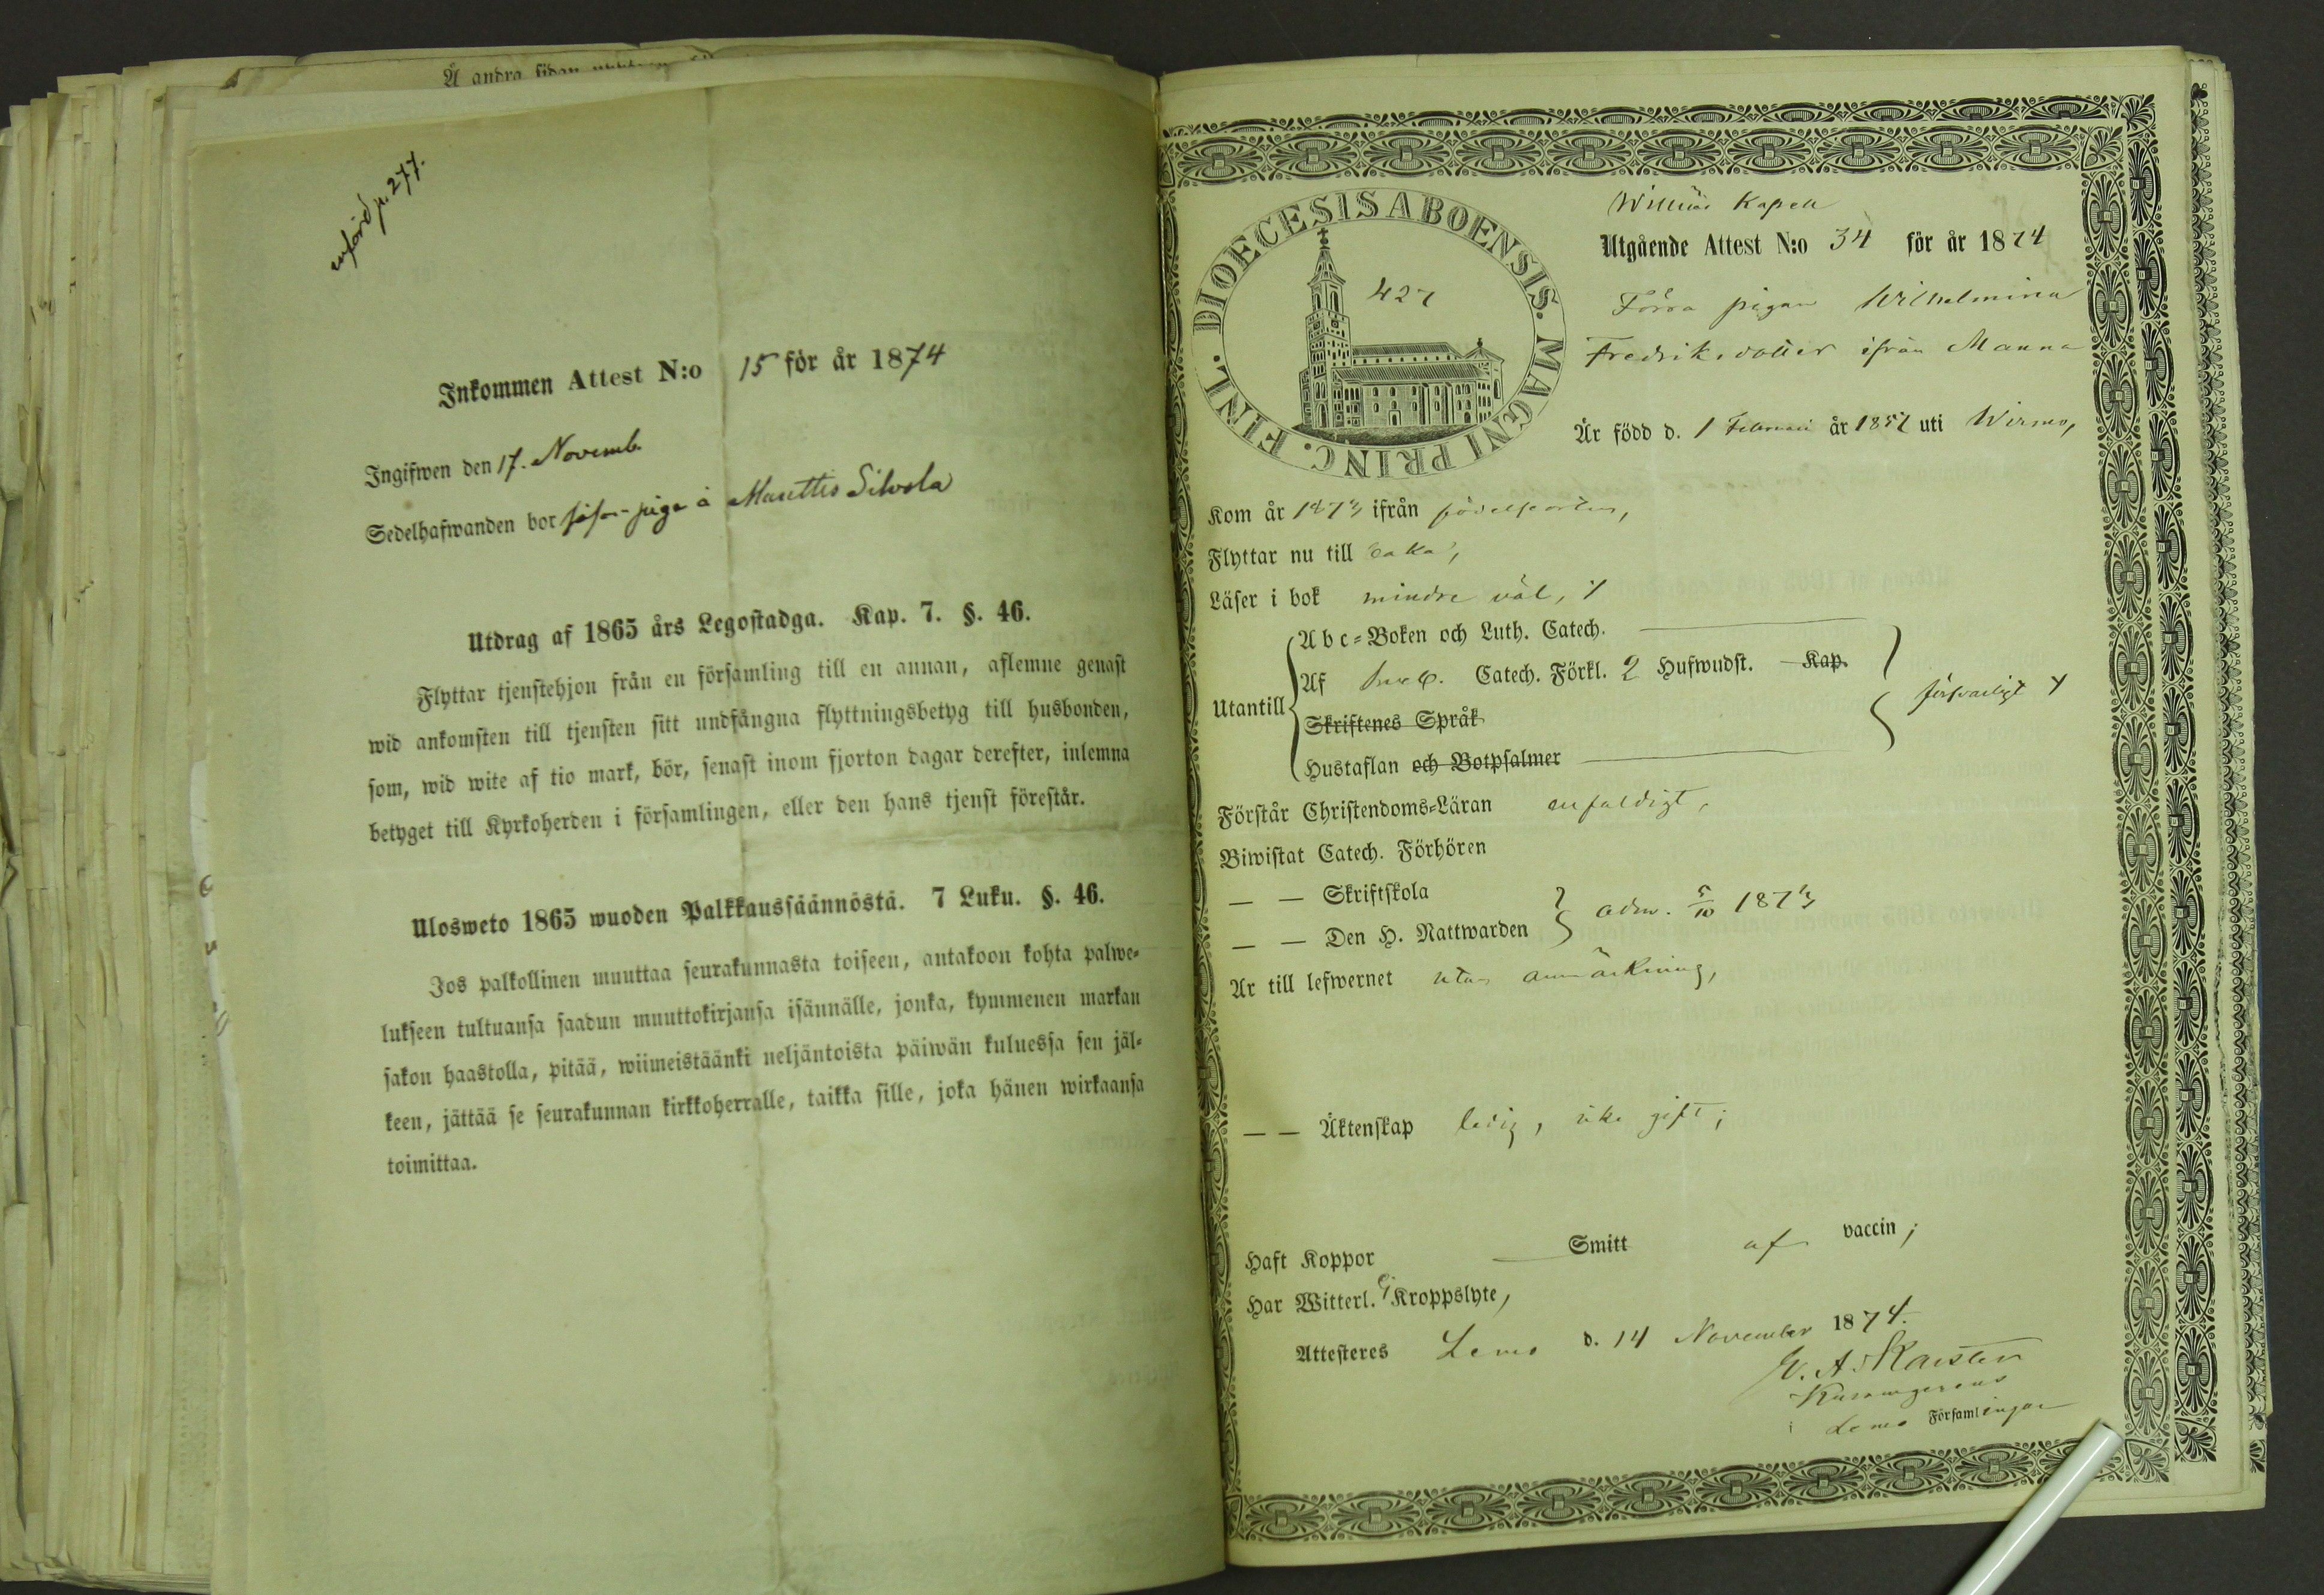 Å andra sidan
införd p. 277.
Inkommen Attest N:o 15 för år 1874
Ingifwen den 17. Novemb.
Sedelhafwanden bor piga å Silvola
Utdrag af 1865 års Legostadga. Kap. 7. §. 46.
Flyttar tjenstehjon från en församling till en annan, aflemne genast
wid ankomsten till tjensten sitt undfångna flyttningsbetyg till husbonden,
som, wid wite af tio mark, bör, senast inom fjorton dagar derefter, inlemna
betyget till Kyrkoherden i församlingen, eller den hans tjenst förestår.
Ulosweto 1865 wuoden Palkkaussäännöstä. 7 Luku. §. 46.
Jos palkollinen muuttaa seurakunnasta toiseen, antakoon kohta palwe-
lukseen tultuansa saadun muuttokirjansa isännälle, jonka, kymmenen markan
sakon haastolla, pitää, wiimeistäänki neljäntoista päiwän kuluessa sen jäl-
keen, jättää se seurakunnan kirkkoherralle, taikka sille, joka hänen wirkaansa
toimittaa.
DIOECESIS ABOENSIS. MAGNI PRINC. FINL.
427
Kapell
Utgående Attest N:o 34 för år 1874
Förra pigan Wilhelmina
Fredriksdotter ifrån Manna
Är född d. 1 Februari år 1857 uti Wirmo,
Kom år 1873 ifrån födelseorten,
Flyttar nu till
Läser i bok mindre väl,
Abc-Boken och Luth. Catech.
Af Catech. Förkl. 2 Hufwudst. Kap.
Utantill
försvarligt
Skriftenes Språk
Hustaflan och Botpsalmer
Förstår Christendoms-Läran enfaldigt,
Biwistat Catech. Förhören
— — Skriftskola
— — Den H. Nattwarden adm. 5/10 1873
Är till lefwernet utan anmärkning,
— — Äktenskap ledig, icke gift;
Haft Koppor Smitt af vaccin;
Har Witterl. ej Kroppslyte,
Attesteres Lemo d. 14 November 1874.
Karsten
i Lemo Församlingar